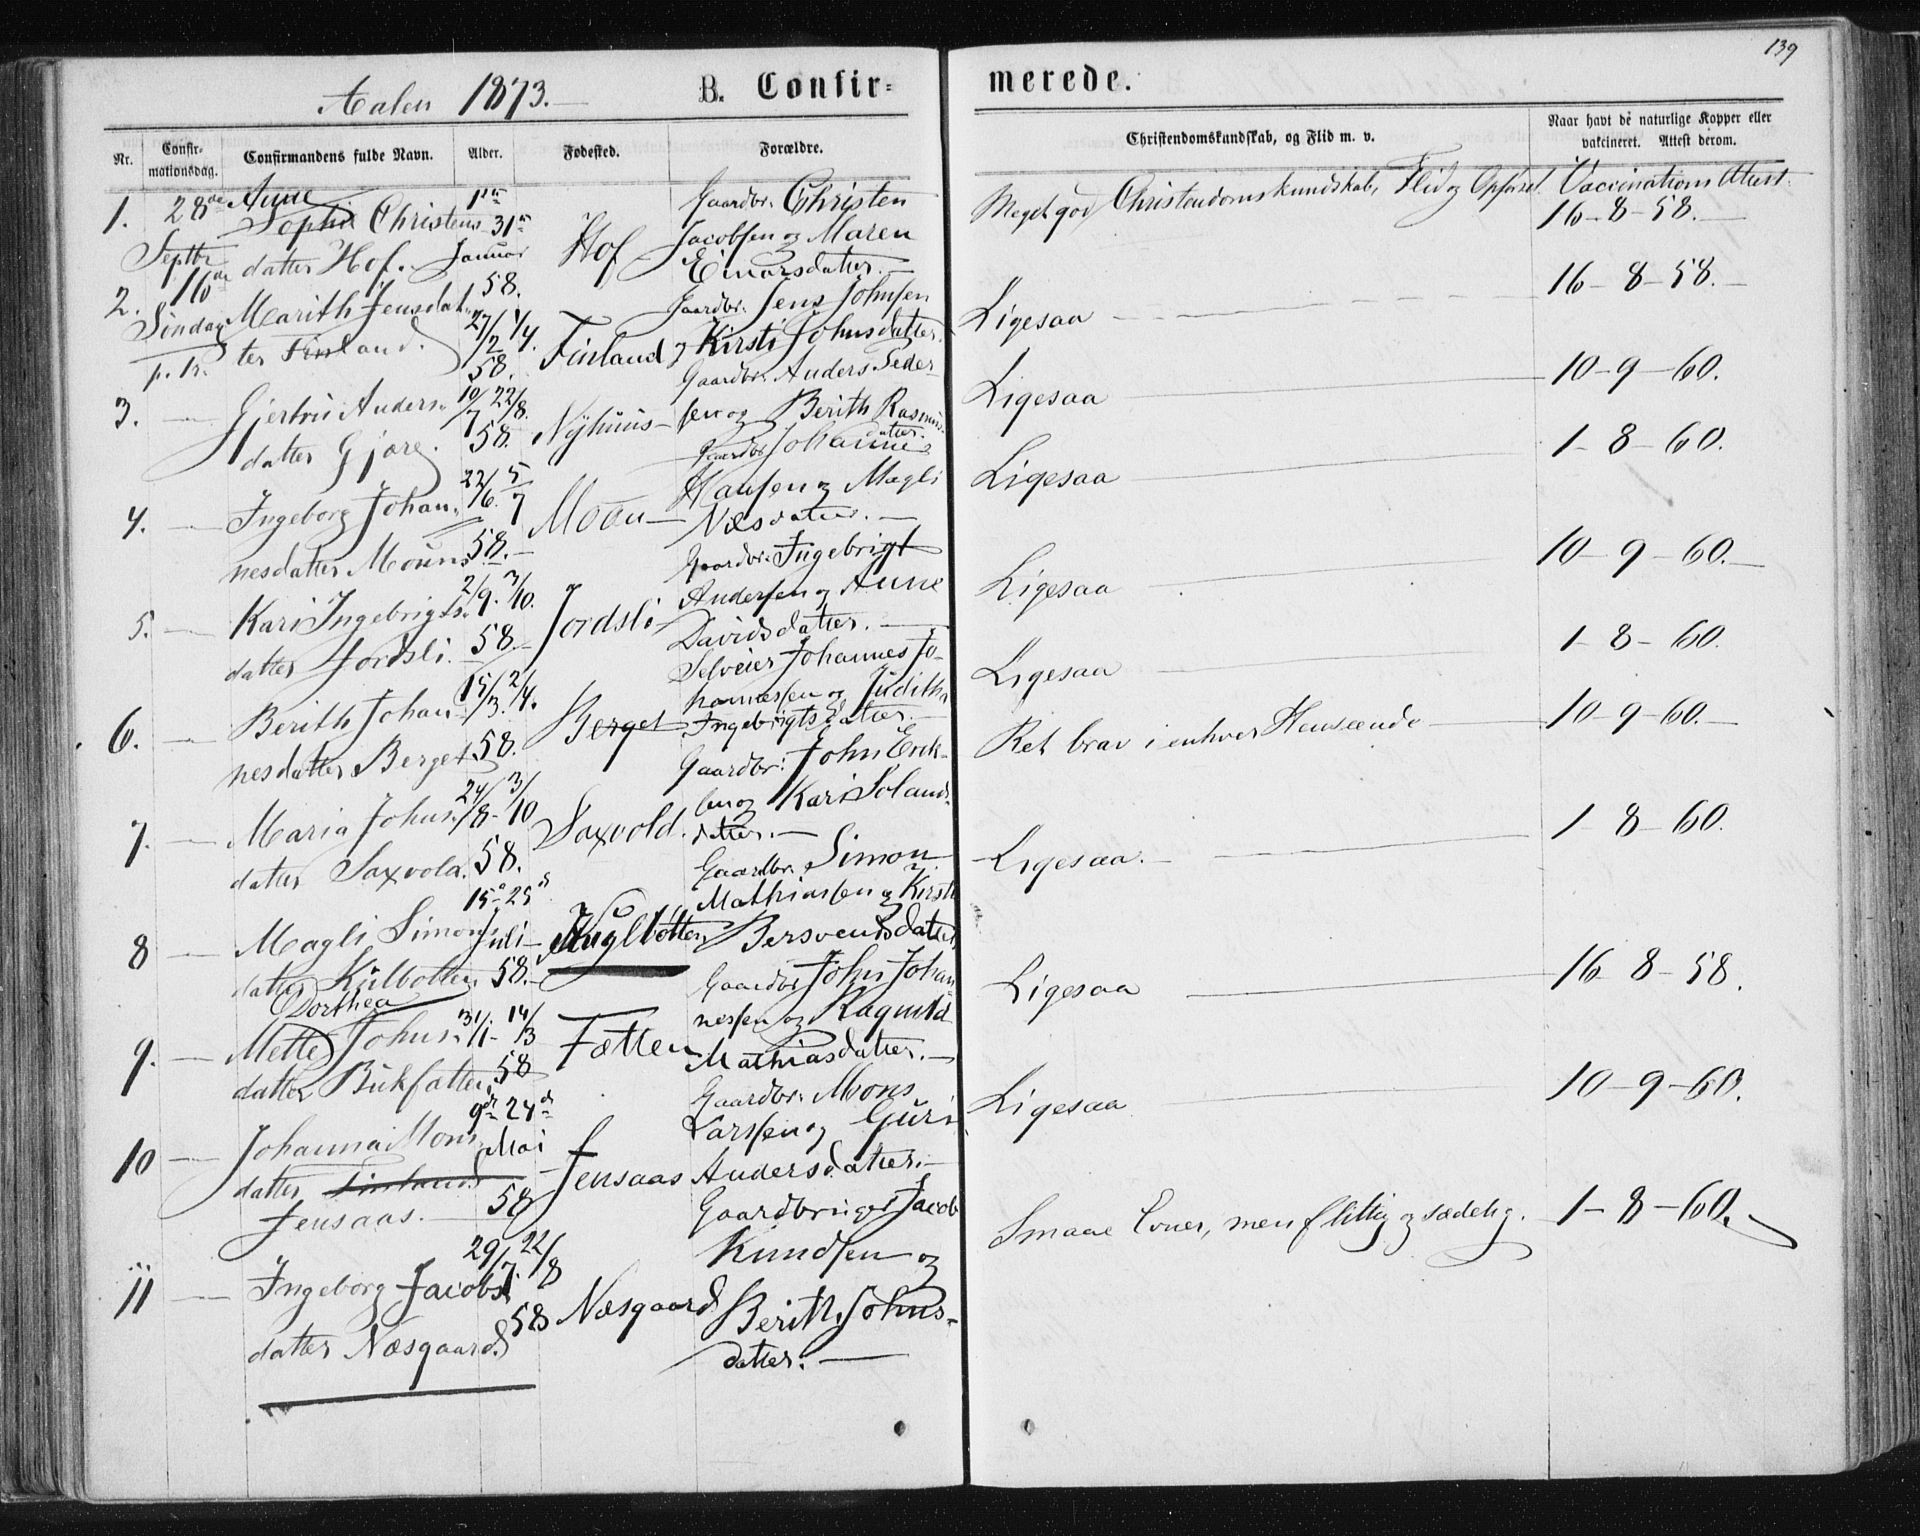 139
Aalen 1873.
B. Confirmerede.
Nr.
Confirmationsdag.
Confirmandens fulde Navn.
Alder.
Fødested.
Forældre.
Christendomskundskab, og Flid m. v.
Naar havt de naturlige Kopper eller
vakcineret. Attest derom.
1.
28de
Septbr
16de
Søndag
p. Tr.
Anne
Sophie Christens
datter Hof.
31te
Januar
58.
Hof
Gaardbr. Christen
Jacobsen og Maren
Einarsdatter.
Meget god Christendomskundskab, Flid og Opførsel.
Vaccinations Attest
16-8-58.
2.
Marith Jensdat
ter Finland.
27/2 1/4.
58.
Finland
Gaardbr. Jens Johnsen
og Kirsti Johnsdatter.
Ligesaa
16-8-58.
3.
Gjertru Anders
datter Gjøre.
10/7 22/8.
58.
Nyhuus
Gaardbr. Anders Peder-
sen og Berith Rasmus-
datter.
Ligesaa
10-9-60.
4.
Ingeborg Johan-
nesdatter Mouns
22/6. 5/7
58.
Moan
Gaardbr Johannes
Hansen og Magli
Nilsdatter.
Ligesaa
1-8-60.
5.
Kari Ingebrigts-
datter Jordsli
2/9. 3/10.
58
Jordsli
Gaardbr. Ingebrigt
Andersen og Anne
Davidsdatter.
Ligesaa
10-9-60.
6.
Berith Johan-
nesdatter Berget
15/3. 2/4.
58.
Berget
Selveier Johannes Jo-
hannessen og Juditha
Ingebrigtsdatter.
Ligesaa
1-8-60.
7.
Maria Johns-
datter Saxvold.
24/8-3/10
58.
Saxvold.
Gaardbr. John Erik-
sen og Kari Solands-
datter.
Ret brav i enhver Henseende
10-9-60.
8
Magli Simons
datter Külbotten
15de 25de
Juli
58.
Kuglbotten
Gaardbr. Simon
Mathiassen og Kirsti
Bersvendsdatter
Ligesaa.
1-8-60.
9.
Dorthea
Mette Johns-
datter Bükfatten
31/1- 14/3
58
Fætten
Gaardbr John Johan-
nessen og Ragnild
Mathiasdatter.
Ligesaa
16-8-58.
10
Johanna Mons
datter Finland
Jensaas.
9de 24de
Mai
58
Jensaas
Gaardbr. Mons
Larssen og Guri
Andersdatter.
Ligesaa
10-9-60.
11
Ingeborg Jacobs
datter Næsgaard.
29/7. 22/8
58
Næsgaard
Gaardbruger Jacob
Knudsen og
Berith Johns-
datter.
Smaae Evner, men flittig og sædelig.
1-8-60.